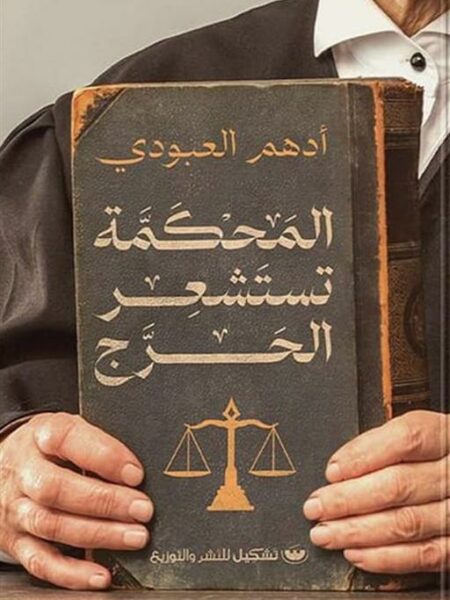 أدهم العبودي
المَحْكَمَّة
تستَشعِر
الحَرَّج
تشكيل للنشر والتوزيع